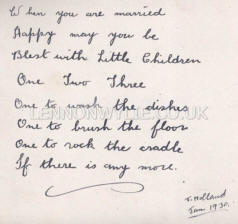 When you are married
Happy may you be
Blest with Little Children
One Two Three
One to wash the dishes
LENNONWYLIE.CO.UK
One to brush the floor
One to rock the cradle
If there is any more.
T. Holland
Jan 1930.